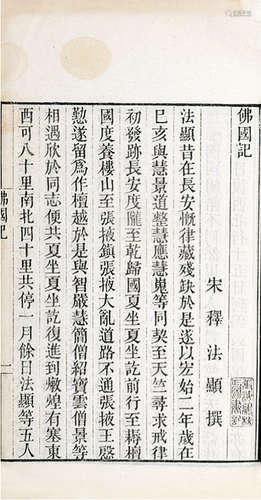 佛國記
宋釋法顯撰
法顯昔在長安慨律藏殘缺於是遂以宏始二年歲在
巳亥與慧景道整慧應慧嵬等同契至天竺尋求戒律
初發跡長安度隴至乾歸國夏坐夏坐訖前行至耨檀
國度養樓山至張掖鎮張掖大亂道路不通張掖王慇
懃遂留為作檀越於是與智嚴慧簡僧紹寶雲僧景等
相遇欣於同志便共夏坐夏坐訖復進到燉煌有塞東
西可八十里南北四十里共停一月餘日法顯等五人
佛國記
一